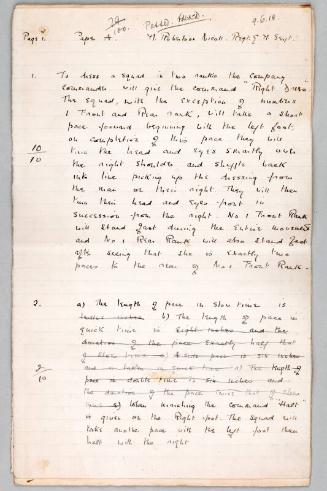 78/100. PASSED. PASSED. 9.6.18.
Page 1. Paper A. Robertson Nicoll.
1. To dress a squad in two ranks the company
commander will give the command "Right Dress"
The squad, with the exception of numbers
1 Front and Rear rank, will take a short
pace forward beginning with the left foot.
on completion of this pace they will
10/10 turn the head and eyes smartly over
the right shoulder and shuffle back
into line picking up the dressing from
the man on their right. They will then
turn their head and eyes front in
succession from the right. No 1 Front Rank
will stand fast during the entire movement
and No 1 Rear Rank will also stand fast
after seeing that she is exactly two
paces to the rear of No 1 Front Rank.
2. a) The length of pace in slow time is
inches b) The length of pace in
quick time is eight inches and the
duration of the pace exactly half that
of slow time c) A side pace is six inches
and is taken in quick time d) The length of
2/10 pace in double time is six inches and
the duration of the pace twice that of slow
e) When marching the command "Halt"
is given on the Right foot. The squad will
take another pace with the left foot then
halt with the right